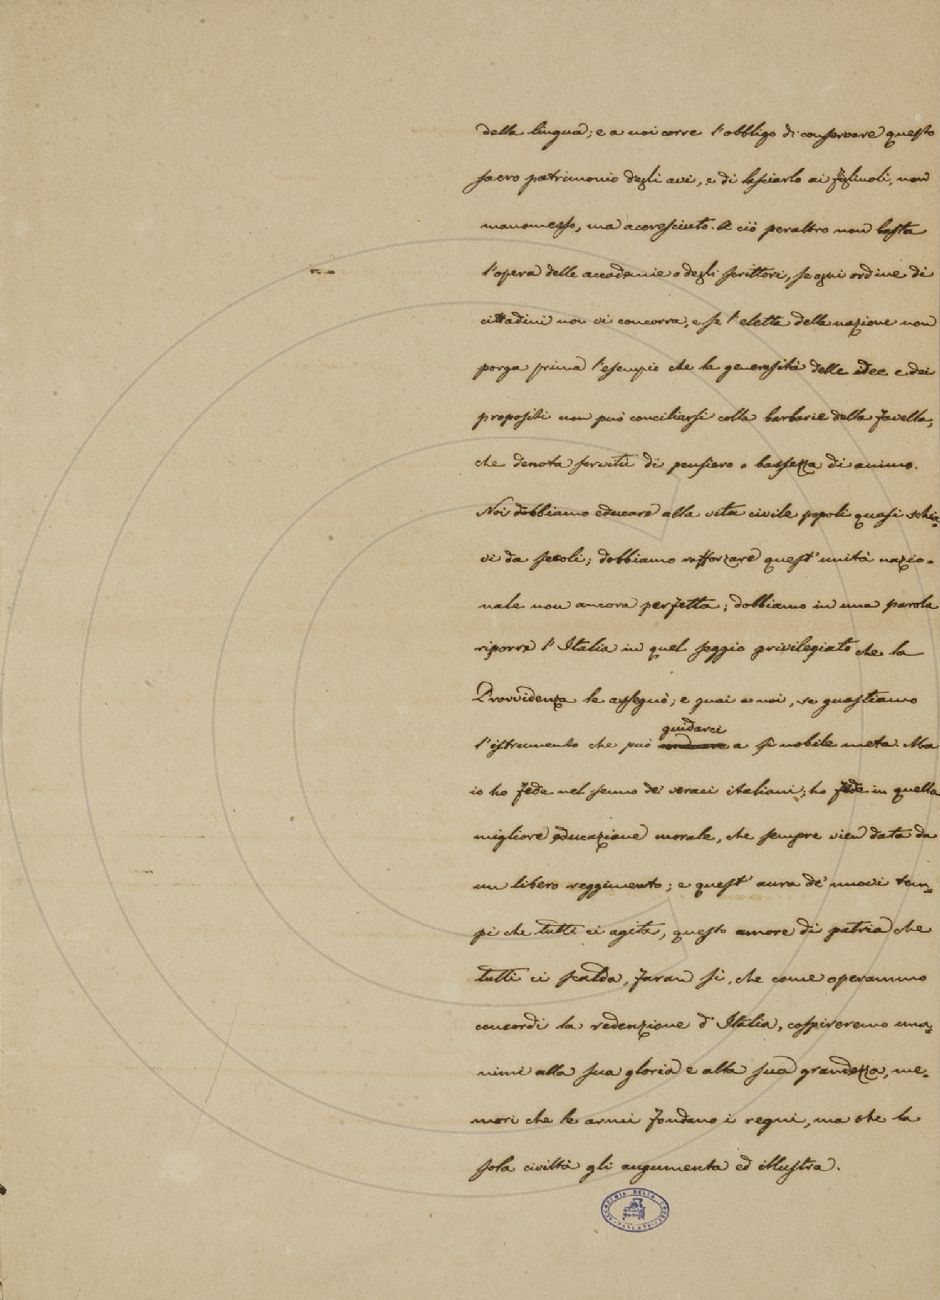 della lingua; e a noi corre l'obbligo di conservare questo
sacro patrimonio degli avi, e di lasciarlo ai figliuoli, non
manomesso, ma accresciuto. A ciò peraltro non basta
l'opera delle accademie o degli scrittori, se ogni ordine di
cittadini non vi concorra, e se l'eletta della nazione non
porga prima l'esempio che la generosità delle idee e dei
propositi non può conciliarsi colla barbarie della favella,
che denota servitù di pensiero o bassezza di animo.
Noi dobbiamo educare alla vita civile popoli quasi schia-
vi da secoli; dobbiamo rafforzare quest'unità nazio-
nale non ancora perfetta; dobbiamo in una parola
riporre l'Italia in quel seggio privilegiato che la
Provvidenza le assegnò; e guai a noi, se guastiamo
guidarci
l'istrumento che può a sì nobile meta. Ma
io ho fede nel senno de' veraci italiani; ho fede in quella
migliore educazione morale, che sempre vien data da
un libero reggimento; e quest'aura de' nuovi tem-
pi che tutti ci agita, questo amore di patria che
tutti ci scalda, faran sì, che come operammo
concordi la redenzione d'Italia, cospireremo una-
nimi alla sua gloria e alla sua grandezza, me-
mori che le armi fondano i regni, ma che la
sola civiltà gli augumenta ed illustra.
ACCADEMIA DELLA CRUSCA